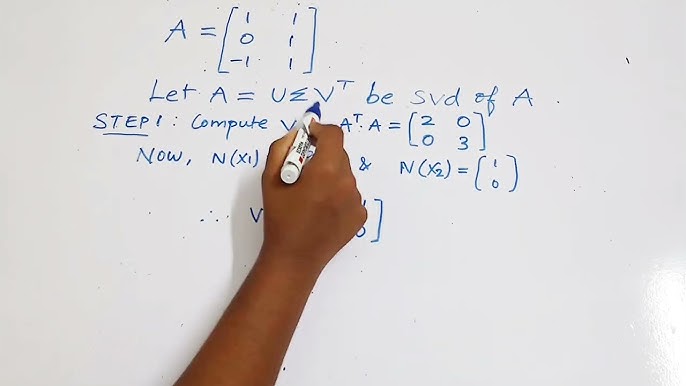 A = [1 1
0 1
-1 1]
Let A = UΣV^T be svd of A
STEP 1: Compute V A^T.A = [2 0
0 3]
Now, N(x1) & N(x2) = (1
0)
∴ V